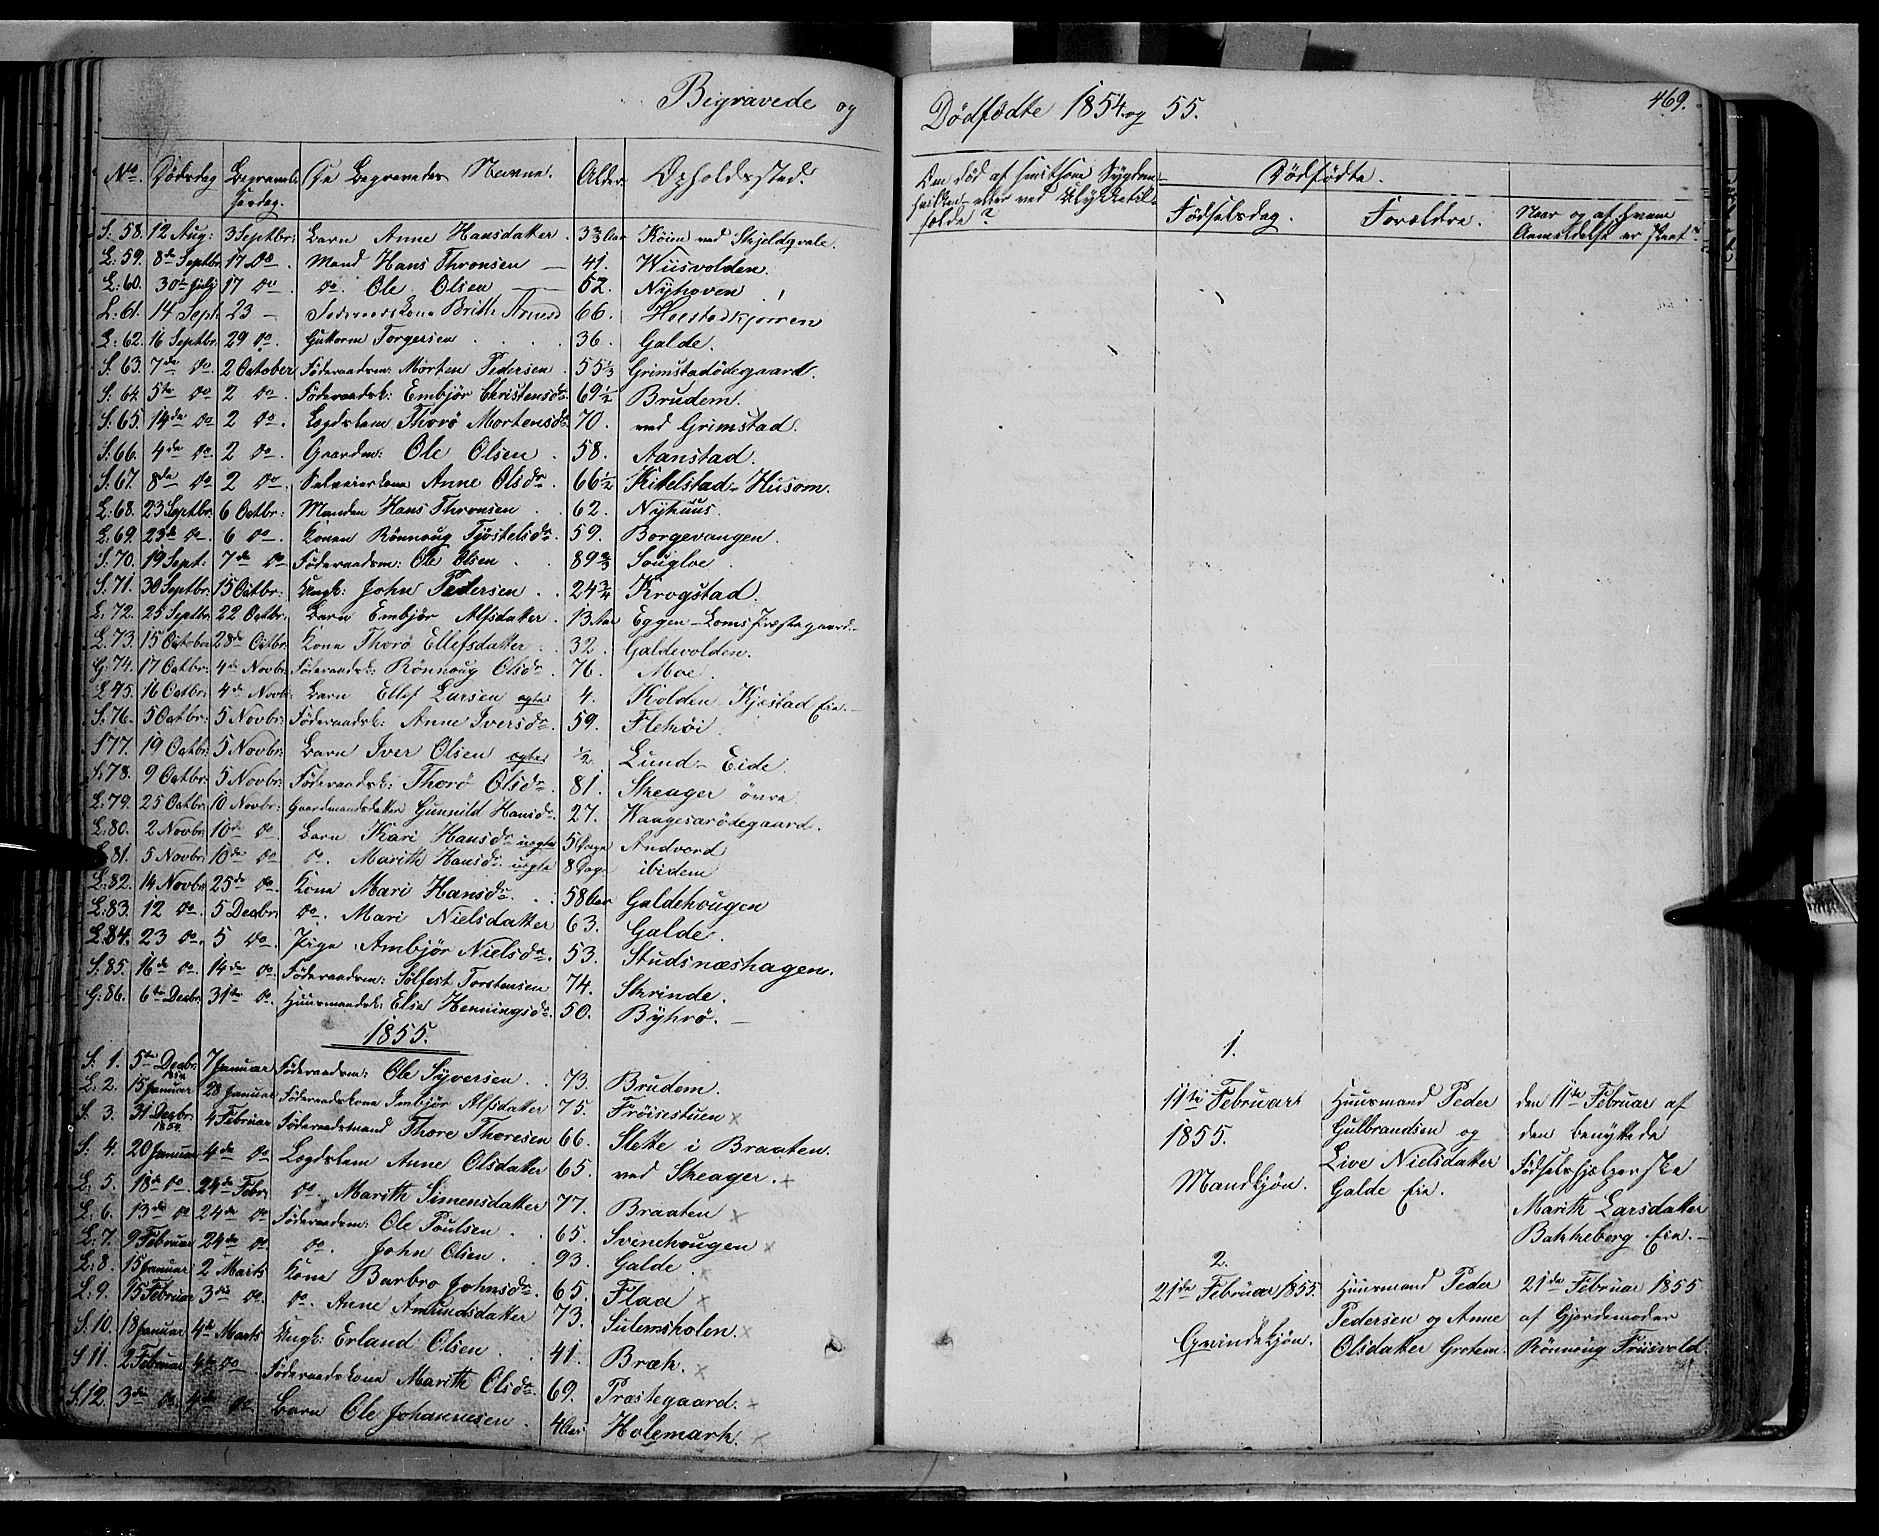 Begravede og
No. Dødsdag Begravelsesdag. De Begravedes Navne. Alder Opholdssted.
S: 58. 12 Aug: 3 Septbr: Barn Anne Hansdatter. 3 2/3 Aar Köien ved Skjeldqvale.
L: 59. 8de Septbr. 17 Do. Mand Hans Thronsen 41. Wiisvolden.
L: 60. 30te Julj 17 do do. Ole Olsen 52. Nyhoven.
L: 61. 14 Sept. 23 - Föderaadskone Brith Arnesd 66.
L: 62. 16 Septbr. 29 do. Guttorm Torgersen 36. Galde.
S: 63. 7de do. 2 October Föderaadsm: Morten Pedersen. 55 1/3 Grimstadödegaard.
S: 64. 5te do 2 do. Föderaadsk: Embjör Christensdr 69 1/2 Brudem.
S: 65. 14de do 2 do. Lægdslem Thorö Mortensdr. 70. ved Grimstad.
S: 66. 4de do 2 do. Gaardm: Ole Olsen. 58. Aanstad.
S: 67. 8de do 2 do. Anne Olsdr. 66 1/2 Kitelstad-Husom.
L: 68. 23 Septbr. 6 Octbr: Manden Hans Thronsen. 62. Nyhuus.
L: 69. 23de do. 6 do. Konen Rönnoug Tjöstelsdr. 59. Borgevangen.
S: 70. 19 Sept: 7de do Föderaadsm: Ole Olsen 89 2/3 Sougloe.
S: 71. 30 Septbr: 15 Octbr: Ungk: John Pedersen. 24 3/4 Krogstad.
L: 72. 25 Septbr. 22 Octbr: Barn Embjör Alfsdatter. 13 Aar Eggen-Loms Præstegaard.
L: 73. 15 October 28de Octbr. Kone Thorö Ellefsdatter. 32. Galdevolden.
G: 74. 17 Octbr: 4de Novbr. Föderaadsk: Rönnoug Olsdr. 76. Moe.
L: 75. 16 Octbr: 4de Novbr: Barn Ellef Larsen ægte 4. Kolden-Kjæstad Eie.
S: 76. 5 Octbr: 5 Novbr: Föderaadsk: Anne Iversdr. 59. Fleköi.
S 77. 19 Octbr: 5 Novbr: Barn Iver Olsen ægte 1/2. Lund-Eide.
S: 78. 9 Octbr: 5 Novbr: Föderaadsk: Thorö Olsdr. 81. Skeager övre.
L: 79. 25 Octbr: 10 Novbr: Gaardmandsdatter Gunnild Hansdr. 27. Waagesarödegaard.
L: 80. 2 Novbr 10de do. Barn Kari Hansdr. uægte 5 Dage Andvord
L 81. 5 Novbr: 10de do do. Marith Hansdr. uægte 8 Dage ibidem
L: 82. 14 Novbr 25de do. Kone Mari Hansdr. 58 Aar Galdehougen
L: 83. 12 do. 5 Decbr: do. Mari Nielsdatter 63. Galde.
L: 84. 23 do. 5 do. Pige Ambjör Nielsdr. 53. Studsnæshagen.
S: 85. 16de do. 14de do. Föderaadsm: Sölfest Torstensen 74. Skrinde.
G: 86. 6te Decbr. 31te do. Huusmandsk: Elie Henningsdr. 50. Byhrö.
1855.
S: 1. 5te Decbr. 1854 7 Januar Föderaadsm: Ole Syversen. 73. Brudem.
L: 2. 15 Januar 28 Januar Föderaadskone Imbjör Alfsdatter 75. Fröisestuen x
S. 3. 31 Decbr. 1854. 4 Februar Föderaadsmand Thore Thoresen 66. Slette i Braaten.
S: 4. 20 Januar 4de do Lægdslem Anne Olsdatter 65. ved Skeager. x
L: 5. 18de do. 24de Febr. do. Marith Simensdatter 77. Braaten x
L: 6. 13de do 24de do Föderaadsm: Ole Poulsen. 65. Svenehougen x
L: 7. 9 Februar 24de do do. John Olsen. 93. Galde. x
L: 8. 15 Januar 2 Marts Kone Barbro Johnsdr. 65. Flaa x
L: 9. 15 Februar 3die do. do. Anne Amundsdatter 73. Sulemsholen. x
S: 10. 18 Januar 4de Marts Ungk: Erland Olsen. 41. Bræk. x
S 11. 2 Februar 4de do Föderaadskone Marith Olsdr. 69. Præstegaard. x
S. 12. 3de do. 4de do. Barn Ole Johannesen. 4 Aar Holemark. x
Dødfødte 1854 og 55.
469.
Om død af smitsom Sygdom, hvilken, eller ved Ulykketilfælde?
Dødfødte.
Födselsdag. Forældre. Naar og af hvem Anmeldelse er skeet?
1.
11te Februar 1855. Mandkjøn.
Huusmand Peder Gulbrandsen og Live Nielsdatter Galde Eie.
den 11te Februar af den benyttede Födselshjelperske Marith Larsdatter Bakkeberg Eie.
2.
21de Februar 1855. Qvindekjøn.
Huusmand Peder Pedersen og Anne Olsdatter Grotem.
21de Februar 1855 af Gjordemoder Rönnoug Friisvold.